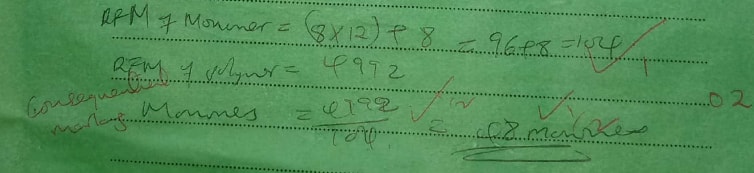 RFM of Monomer = (8x12) + 8 = 96+8 = 104 1
RFM of polymer = 4992
Consequential marking Monomers = 4992/104 = 48 monomers 02